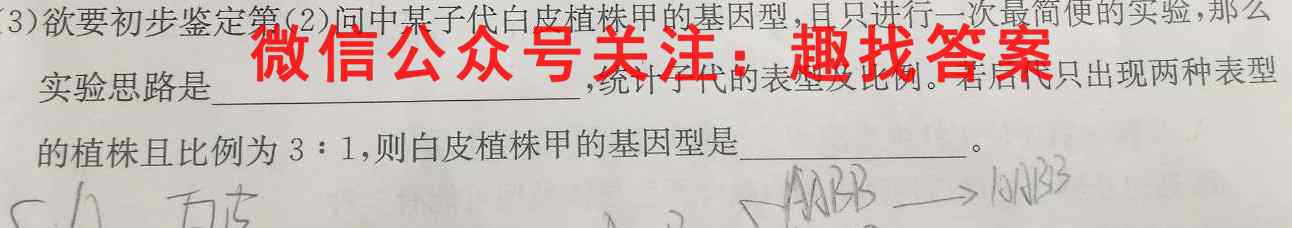 (3)欲要初步鉴定第(2)问中某子代白皮植株甲的基因型,且只进行一次最简便的实验,那么
微信公众号关注：趣找答案
实验思路是____________________,统计子代的表型及比例。若后代只出现两种表型
的植株且比例为 3∶1,则白皮植株甲的基因型是____________。
AABB → AABB